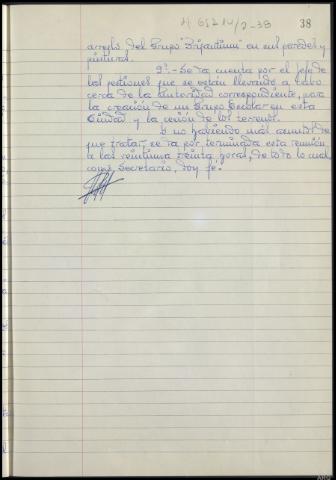 38
arreglo del Grupo Bifautimi en sus paredes y
pinturas.
2º.- Se da cuenta por el jefe de
las gestiones que se están llevando a cabo
cerca de la autoridad correspondiente, para
la creación de un Grupo Escolar en esta
Ciudad y la cesión de los terrenos.
Y no habiendo más asuntos de
que tratar se da por terminada esta reunión
a las veintiuna treinta horas, de todo lo cual
como Secretario, doy fé.